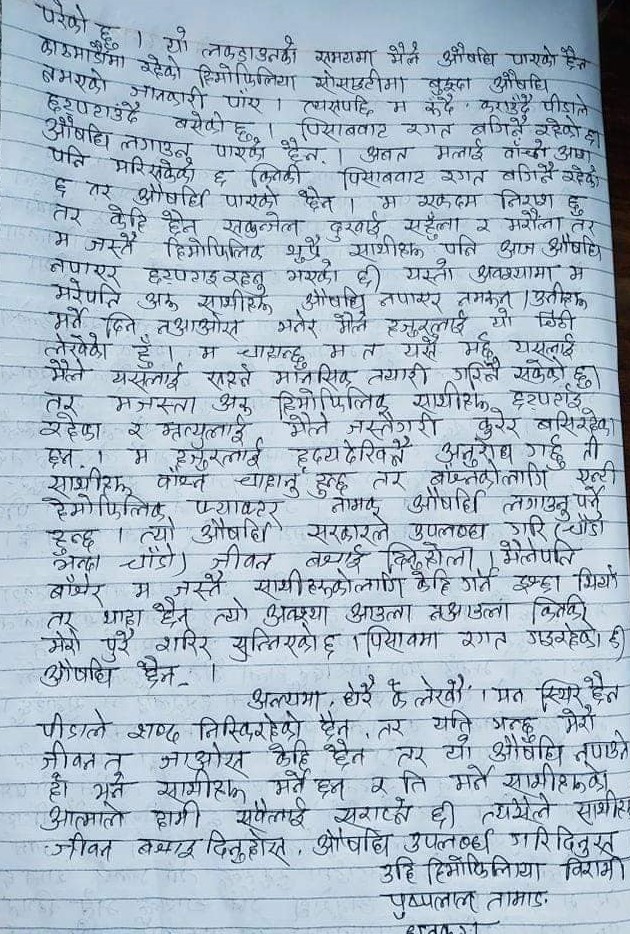 परेको छु । यो लकडाउनको समयमा मैले औषधि पाएको छैन
काठमाडौमा रहेको हिमोफिलिया सोसाइटीमा बुझ्दा औषधि
नभएको जानकारी पाए । त्यसपछि म रुँदै कराउँदै पीडाले
छटपटाउँदै बसेको छु । पिसाबबाट रगत बगिनै रहेको छ।
औषधि लगाउन पाएको छैन । अबत मलाई बाँच्ने आशा
पनि मरिसकेको छ किनकी पिसाबबाट रगत बगिनै रहेको
छ तर औषधि पाएको छैन । म एकदम निराश छु
तर केहि छैन सकुन्जेल दुखाई सहुँला र मरौला तर
म जस्तै हिमोफिलिक थुप्रै साथीहरू पनि आज औषधि
नपाएर छटपटाइ रहनु भएको छ। यस्तो अवस्थामा म
मरेपनि अरू साथीहरू औषधि नपाएर नमरून् । उनीहरू
मर्ने दिन नआओस् भनेर मैले हजुरलाई यो चिठी
लेखेको हुँ । म चाहान्छु म त यसै मर्छु यसलाई
मैले यसलाई सहने मानसिक तयारी गरिनै सकेको छु।
तर मजस्ता अरू हिमोफिलिक साथीहरू छटपटाई
रहेका र मृत्युलाई मैले जस्तैगरी कुरेर बसिरहेका
छन् । म हजुरलाई हृदयदेखिनै अनुरोध गर्छु ती
साथीहरू बाँच्न चाहानु हुन्छ तर बाँच्नकोलागि एन्टी
हेमोफिलिक फ्याक्टर नामक औषधि लगाउनु पर्ने
हुन्छ । त्यो औषधि सरकारले उपलब्ध गरि (चाँडो
भन्दा चाँडो) जीवन बचाई दिनुहोला । मैलेपनि
बाँचेर म जस्तै साथीहरूकोलागि केहि गर्ने इच्छा थियो
तर थाहा छैन त्यो अवस्था आउला नआउला किनकी
मेरो पुरै शरिर सुन्निएको छ । पिसाबमा रगत गइरहेको छ।
औषधि छैन ।
अन्त्यमा, धेरै के लेखौं । मन स्थिर छैन
पीडाले शब्द निस्किरहेको छैन, तर यति भन्छु मेरो
जीवन त जाओस् केहि छैन तर यो औषधि नपाउने
हो भने साथीहरू मर्ने छन् र ति मर्ने साथीहरूको
आत्माले हामी सबैलाई सराप्ने छ। त्यसैले साथीहरू
जीवन बचाइदिनुहोस्, औषधि उपलब्ध गरिदिनुस्
उहि हिमोफिलिया बिरामी
पुष्पलाल तामाङ